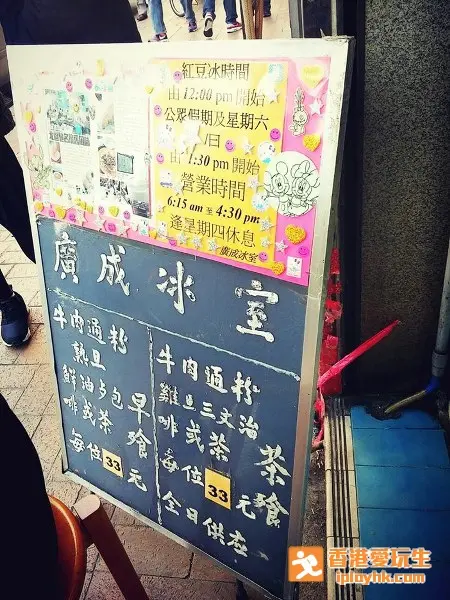 紅豆冰時間
由 12:00 pm 開始
公眾假期及星期六
/日
由 1:30 pm 開始
營業時間
6:15 am 至 4:30 pm
逢星期四休息
廣成冰室
廣成冰室
牛肉通粉
熱旦
鮮油多包
啡或茶
早飱
每位33元
牛肉通粉
雞旦三文治
啡或茶
茶飱
每位33元
全日供應
香港愛玩生
iplayhk.com